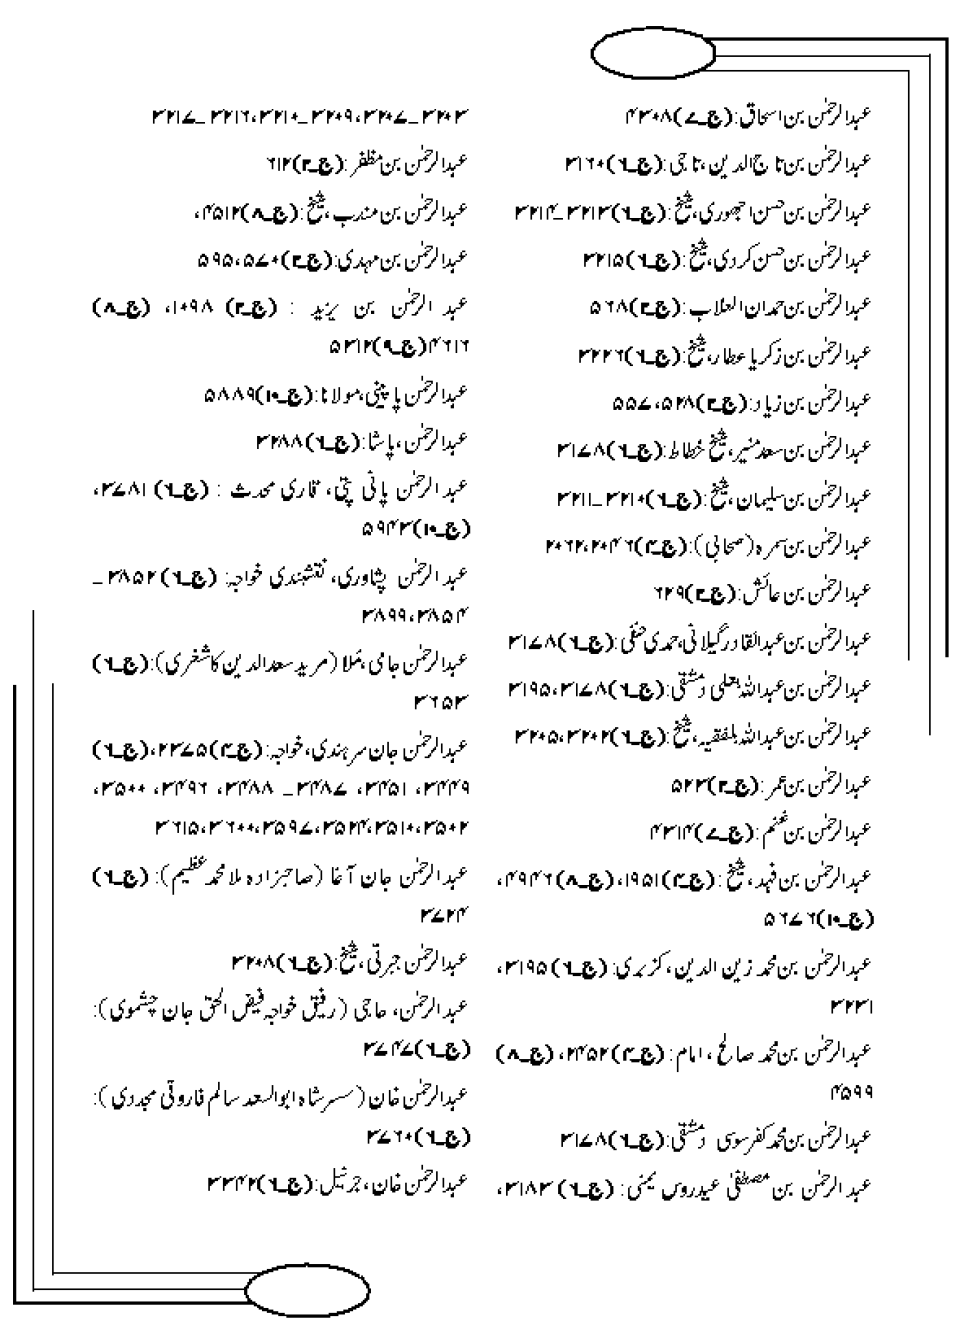 عبدالرحمٰن بن اسحاق:(ج۔۷)۴۳۰۸
عبدالرحمٰن بن تاج الدین، تاجی:(ج۔۶)۳۱۶۰
عبدالرحمٰن بن حسن اجھوری، شیخ:(ج۔۶)۳۲۱۳۔۳۲۱۴
عبدالرحمٰن بن حسن کردی، شیخ:(ج۔۶)۳۲۱۵
عبدالرحمٰن بن حمدان العلاب:(ج۔۲)۵۶۸
عبدالرحمٰن بن زکریا عطار، شیخ:(ج۔۶)۳۲۲۶
عبدالرحمٰن بن زیاد:(ج۔۲)۵۲۸، ۵۵۷
عبدالرحمٰن بن سعد منیر، شیخ خطاط:(ج۔۶)۳۱۷۸
عبدالرحمٰن بن سلیمان، شیخ:(ج۔۶)۳۲۱۰۔۳۲۱۱
عبدالرحمٰن بن سمرہ (صحابی):(ج۔۴)۲۰۴۶، ۲۰۶۲
عبدالرحمٰن بن عائش:(ج۔۲)۶۲۹
عبدالرحمٰن بن عبدالقادر گیلانی، حمدی حنفی:(ج۔۶)۳۱۷۸
عبدالرحمٰن بن عبداللہ بعلی دمشقی:(ج۔۶)۳۱۷۸، ۳۱۹۵
عبدالرحمٰن بن عبداللہ بلفقیہ، شیخ:(ج۔۶)۳۲۰۲، ۳۲۰۵
عبدالرحمٰن بن عمر:(ج۔۲)۵۲۳
عبدالرحمٰن بن غنم:(ج۔۷)۴۳۱۴
عبدالرحمٰن بن فہد، شیخ:(ج۔۴)۱۹۵۱، (ج۔۸)۴۹۴۶،
(ج۔۱۰)۵۶۷۶
عبدالرحمٰن بن محمد زین الدین، کزبری:(ج۔۶)۳۱۹۵،
۳۲۳۱
عبدالرحمٰن بن محمد صالح، امام:(ج۔۴)۲۴۵۲، (ج۔۸)
۴۵۹۹
عبدالرحمٰن بن محمد کفرسوسی دمشقی:(ج۔۶)۳۱۷۸
عبدالرحمٰن بن مصطفیٰ عیدروس یمنی:(ج۔۶)۳۱۸۳،
۳۲۰۳۔۳۲۰۷، ۳۲۰۹۔۳۲۱۰، ۳۲۱۶۔۳۲۱۷
عبدالرحمٰن بن مظفر:(ج۔۲)۶۱۲
عبدالرحمٰن بن مندب، شیخ:(ج۔۸)۴۵۱۲،
عبدالرحمٰن بن مہدی:(ج۔۲)۵۷۰، ۵۹۵
عبدالرحمٰن بن یزید : (ج۔۲) ۱۰۹۸، (ج۔۸)
۴۶۱۶(ج۔۹)۵۳۱۲
عبدالرحمٰن پاپینی، مولانا:(ج۔۱۰)۵۸۸۹
عبدالرحمٰن، پاشا:(ج۔۶)۳۲۸۸
عبدالرحمٰن پانی پتی، قاری محدث : (ج۔۶)۳۷۸۱،
(ج۔۱۰)۵۹۴۳
عبدالرحمٰن پشاوری، نقشبندی خواجہ: (ج۔۶)۳۸۵۲۔
۳۸۵۴، ۳۸۹۹
عبدالرحمٰن جامی، مُلا (مرید سعدالدین کاشغری):(ج۔۶)
۳۶۵۳
عبدالرحمٰن جان سرہندی، خواجہ:(ج۔۴)۲۳۷۵، (ج۔۶)
۳۴۴۹، ۳۴۵۱، ۳۴۸۷۔ ۳۴۸۸، ۳۴۹۶، ۳۵۰۰،
۳۵۰۲، ۳۵۱۰، ۳۵۲۴، ۳۵۹۷، ۳۶۰۰، ۳۶۱۵
عبدالرحمٰن جان آغا (صاحبزادہ ملا محمد عظیم): (ج۔۶)
۳۷۲۴
عبدالرحمٰن جبرتی، شیخ:(ج۔۶)۳۲۰۸
عبدالرحمٰن، حاجی (رفیق خواجہ فیض الحق جان چشموی):
(ج۔۶)۳۷۴۷
عبدالرحمٰن خان (سسر شاہ ابوالسعد سالم فاروقی مجددی):
(ج۔۶)۳۷۶۰
عبدالرحمٰن خان، جرنیل:(ج۔۶)۳۳۴۲